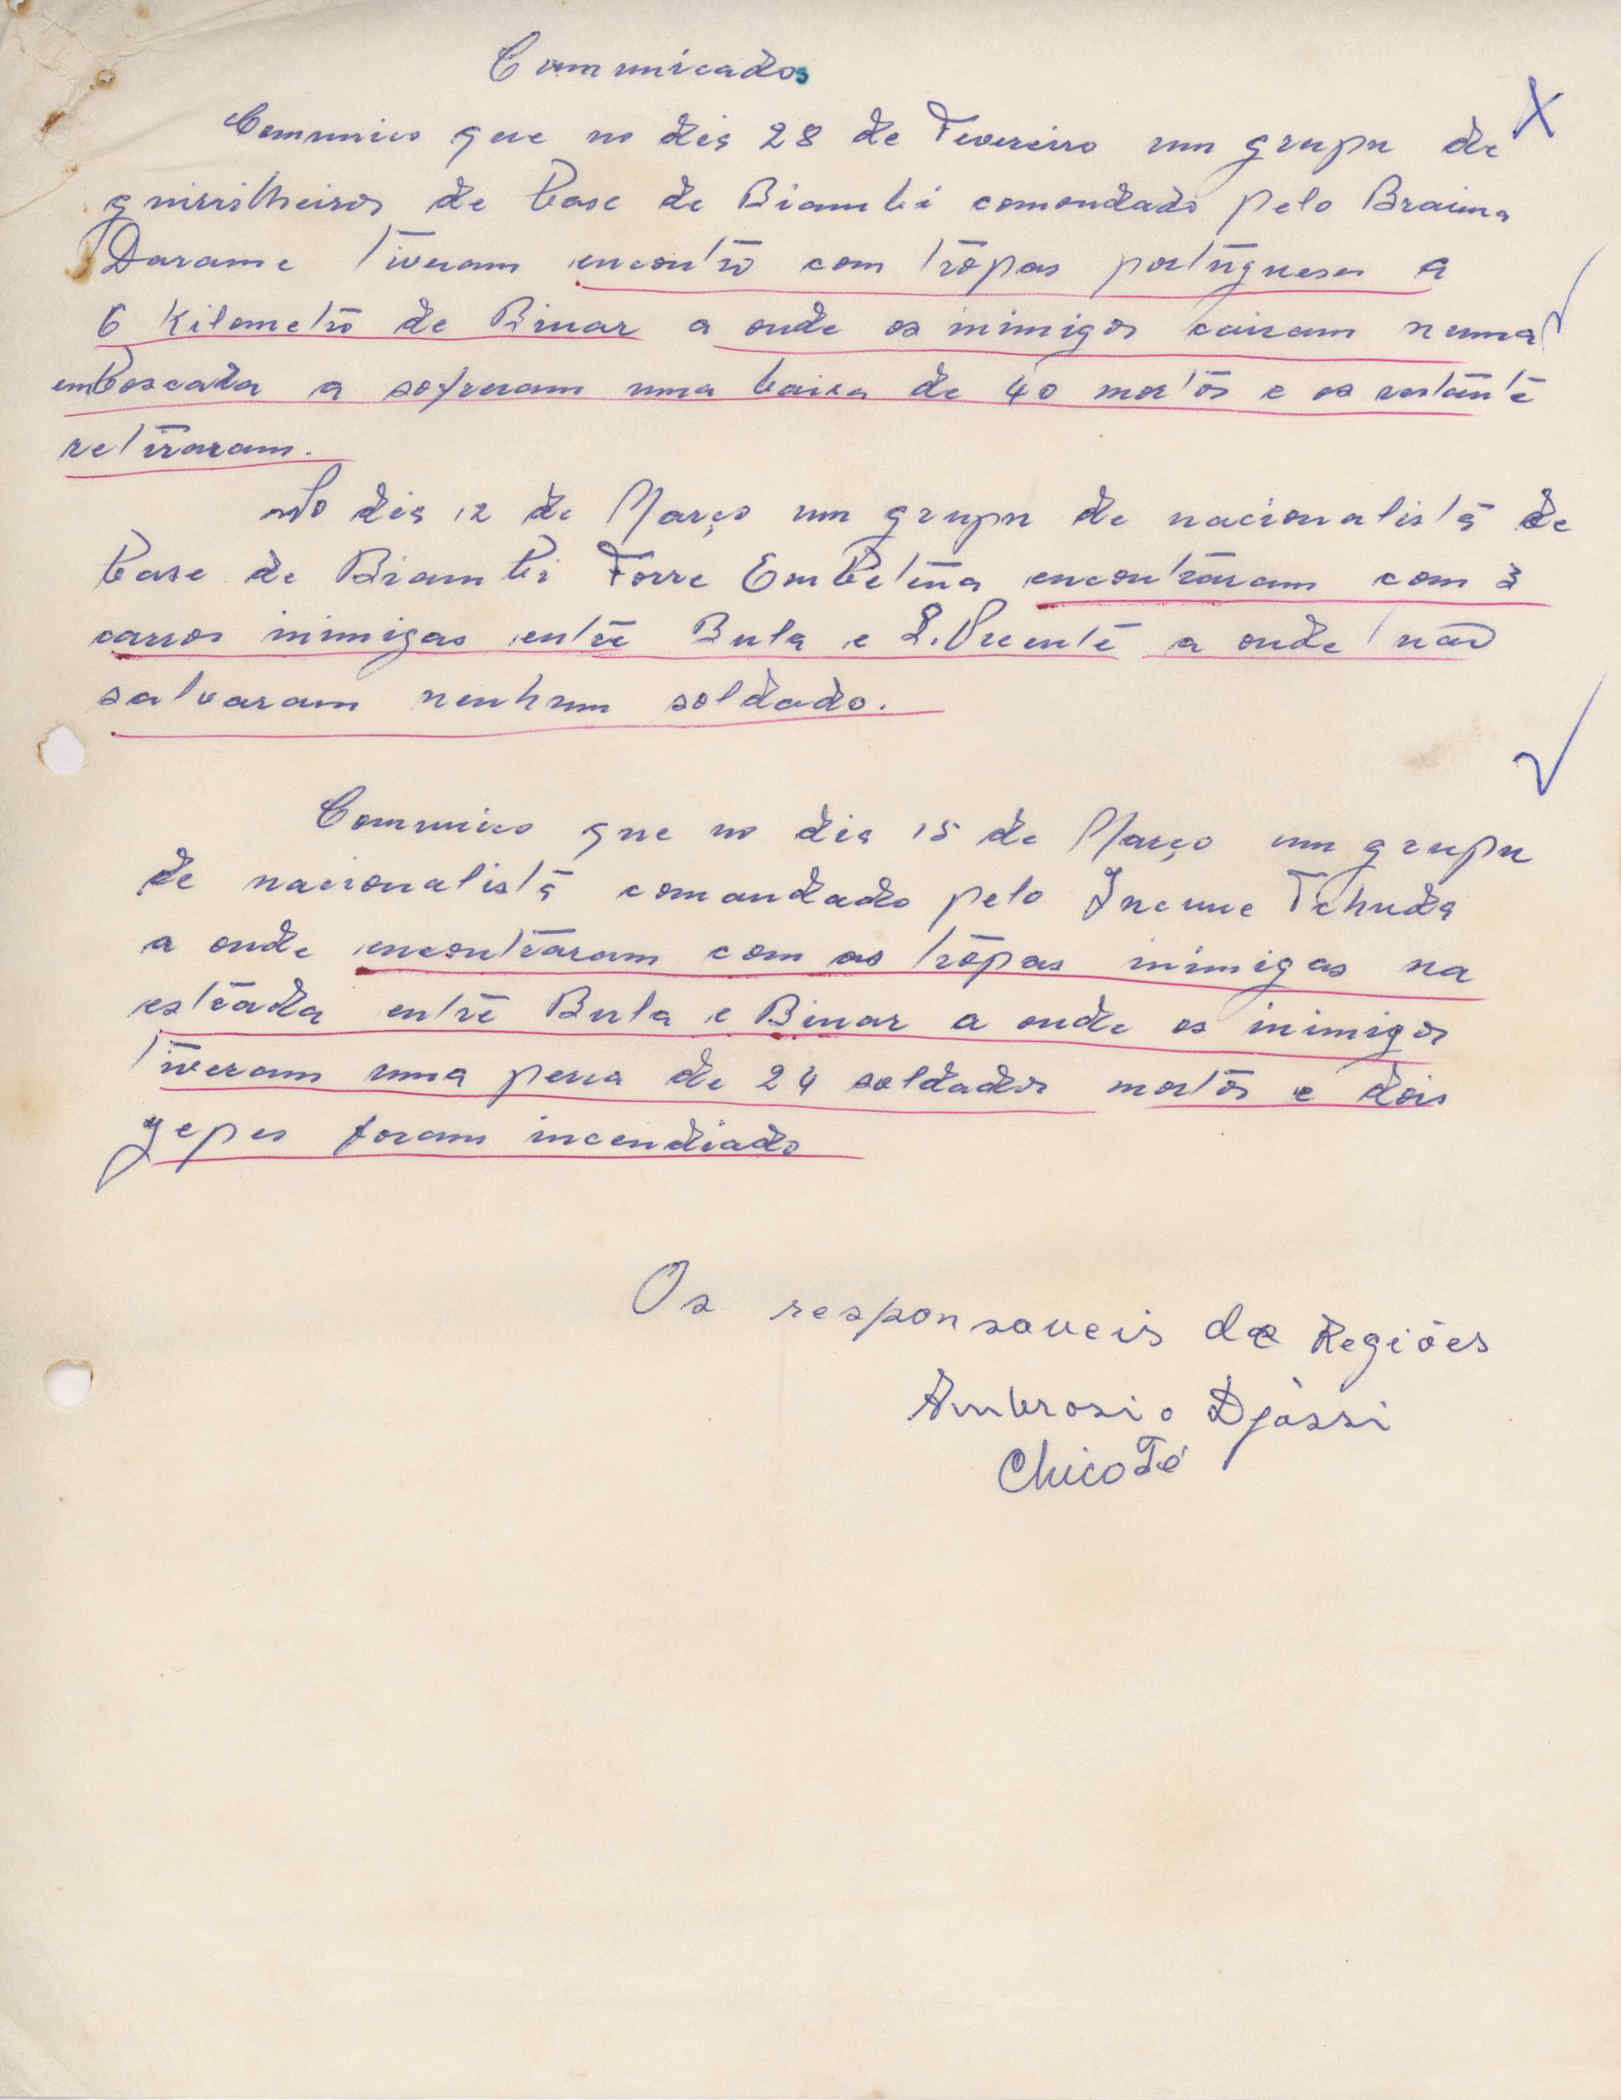 Comunicados
Comunico que no dia 28 de Fevereiro um grupu de
guirrilheiros de base de Biambi comondado pelo Braima
Darame tiveram encontro com tropas portuguesas a
6 kilometro de Binar a onde os inimigos cairam numa
emboscada a sofreram uma baixa de 40 mortos e os restante
retiraram.
No dia 12 de Março um grupu de nacionalista de
base de Biambi Forre Embetina encontraram com 3
carros inimigas entre Bula e S. Vicente a onde não
salvaram nenhum soldado.
Comunico que no dia 15 de Março um grupu
de nacionalista comandado pelo Tchuda
a onde encontraram com as tropas inimigas na
estrada entre Bula e Binar a onde os inimigos
tiveram uma perca de 24 soldados mortos e dois
gepes foram incendiado
Os responsaveis de Regiões
Ambrosio Djassi
Chico Té